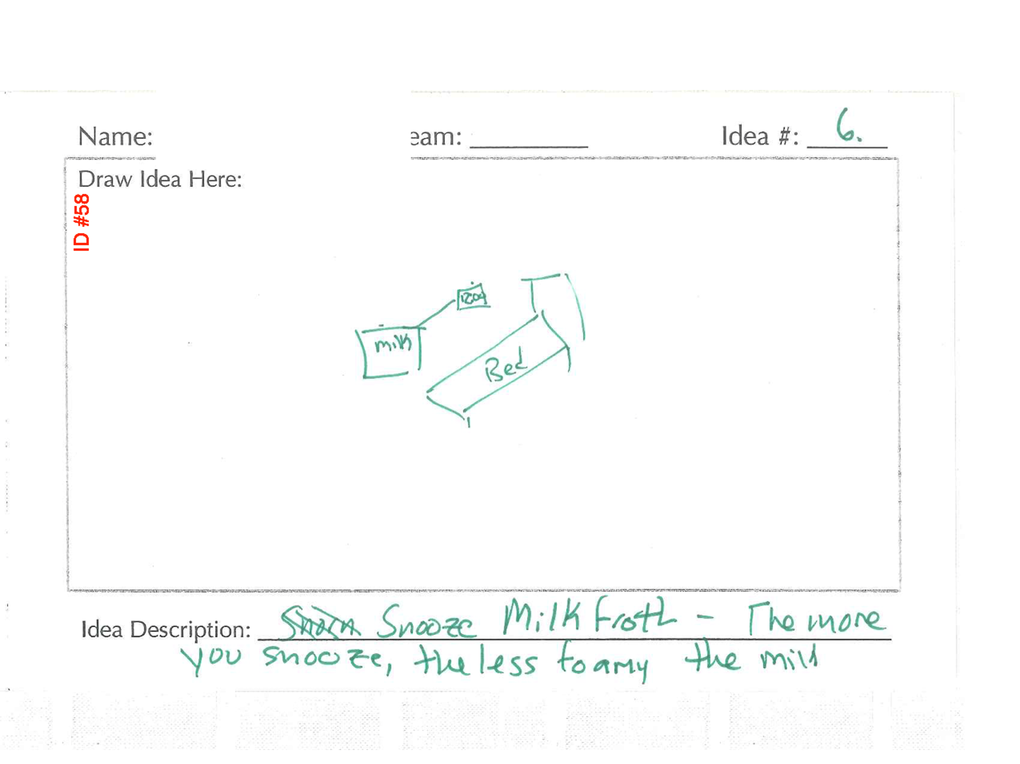 Name:
eam:
Idea #: 6.
Draw Idea Here:
ID #58
milk
Bed
Idea Description: Snooze Milk Froth - The more
you snooze, the less foamy the milk